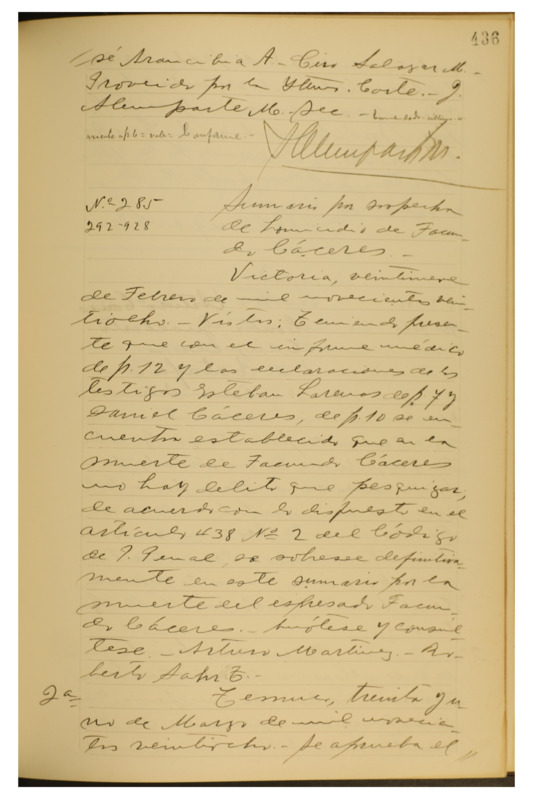 436
sé Arancibia A.- Ciro Salazar M.-
Proveido por la Iltma. Corte.- J.
Alemparte M. Sec.-
mente - p. 6 = vale = Conforme.-
JAlemparteM.
Nº 285
292-928
Sumario por sospecha
de homicidio de Facun-
do Cáceres.-
Victoria, veintinueve
de Febrero de mil novecientos vein-
tiocho.- Vistos: Teniendo presen-
te que con el informe médico
de p. 12 y las declaraciones de los
testigos Esteban Larenas de p. 7 y
Daniel Cáceres, de p. 10 se en-
cuentra establecido que en la
muerte de Facundo Cáceres
no hay delito que pesquizar,
de acuerdo con lo dispuesto en el
artículo 438 Nº 2 del Código
de P. Penal, se sobresee definitiva-
mente en este sumario por la
muerte del espresado Facun-
do Cáceres.- Anótese y consúl-
tese.- Arturo Martinez.- Ro-
berto Sahr T.-
2ª
Temuco, treinta y u-
no de Marzo de mil novecien-
tos veintiocho.- Se aprueba el "